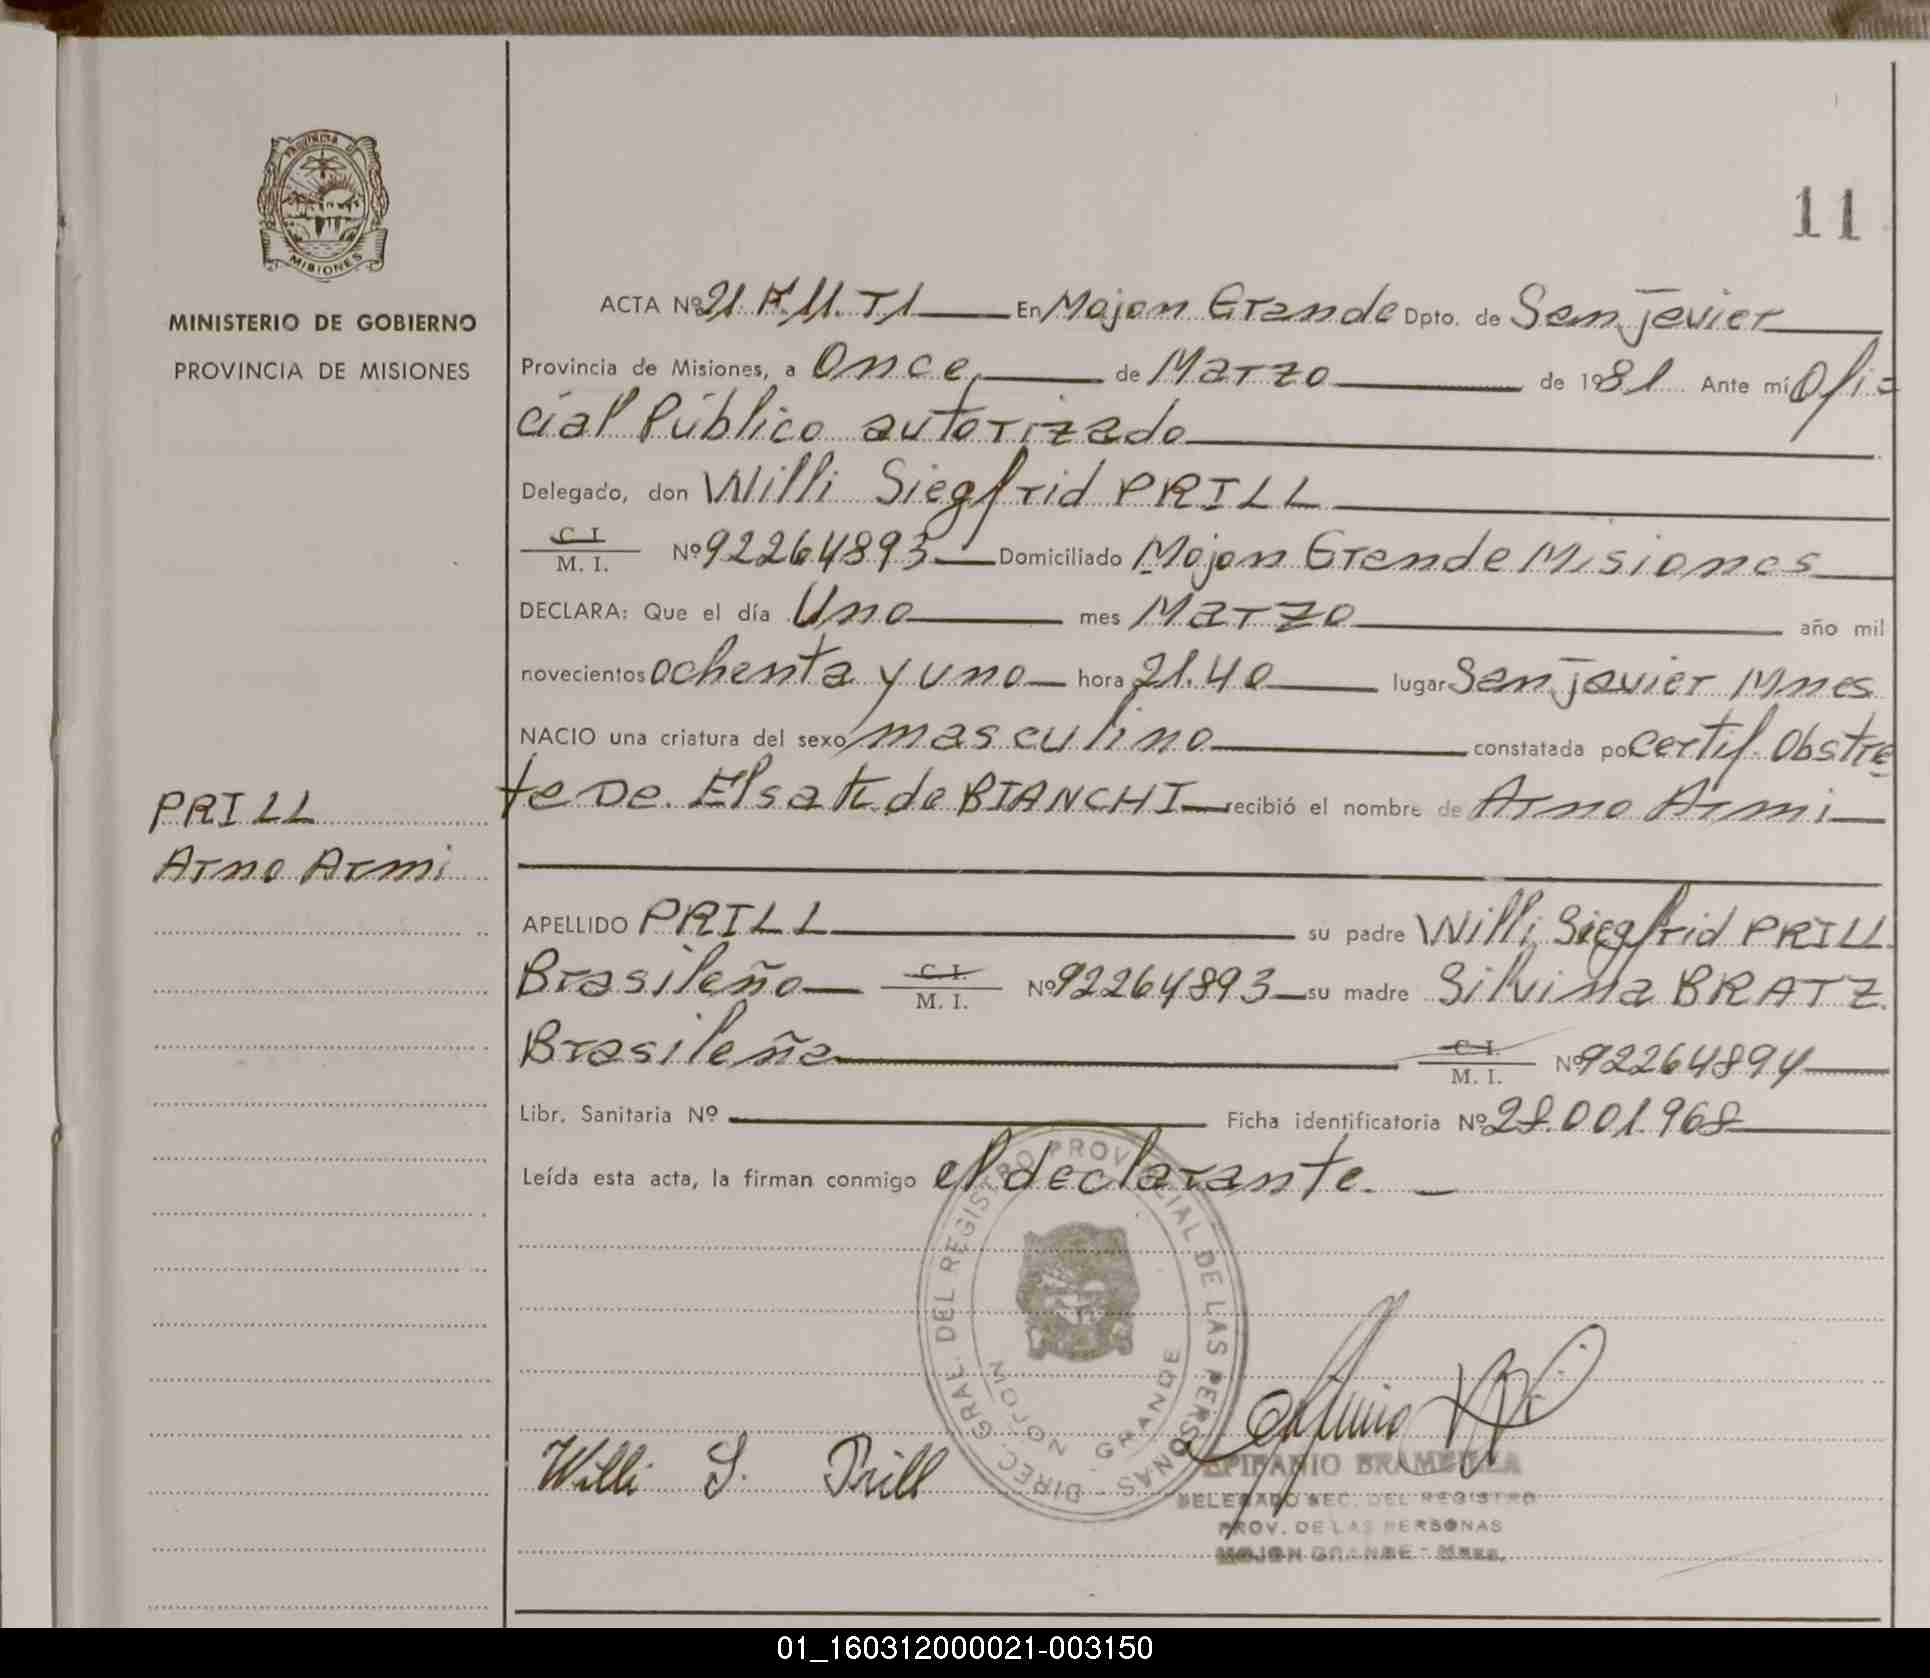 Provincia de
MISIONES
MINISTERIO DE GOBIERNO
PROVINCIA DE MISIONES
11
ACTA Nº 21. F. 11. T1 En Mojon Grande Dpto. de San Javier
Provincia de Misiones, a Once de Marzo de 1981 Ante mí Ofi-
cial Público autorizado
Delegado, don Willi Siegfrid PRILL
C. I. / M. I. Nº 92264893 Domiciliado Mojon Grande Misiones
DECLARA: Que el día Uno mes Marzo año mil
novecientos ochenta y uno hora 21.40 lugar San Javier Mnes
NACIO una criatura del sexo masculino constatada po certif. Obstre
te De. Elsa K de BIANCHI recibió el nombre de Arno Armi
PRILL
Arno Armi
APELLIDO PRILL su padre Willi Siegfrid PRILL
Brasileño C. I. / M. I. Nº 92264893 su madre Silvina BRATZ
Brasileña C. I. / M. I. Nº 92264894
Libr. Sanitaria Nº Ficha identificatoria Nº 28.001.968
Leída esta acta, la firman conmigo el declarante.
DIREC. GRAL. DEL REGISTRO PROVINCIAL DE LAS PERSONAS
MOJON GRANDE
Willi S. Prill
EPIFANIO
DELEGADO SEC. DEL REGISTRO
PROV. DE LAS PERSONAS
MOJON GRANDE - Mnes.
01_160312000021-003150